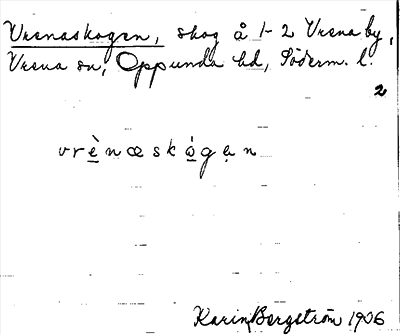 Vrenaskogen, skog å 1-2 Vrena by,
Vrena sn, Oppunda hd, Söderm. l.
2
vrènæskógan
Karin Bergström 1906